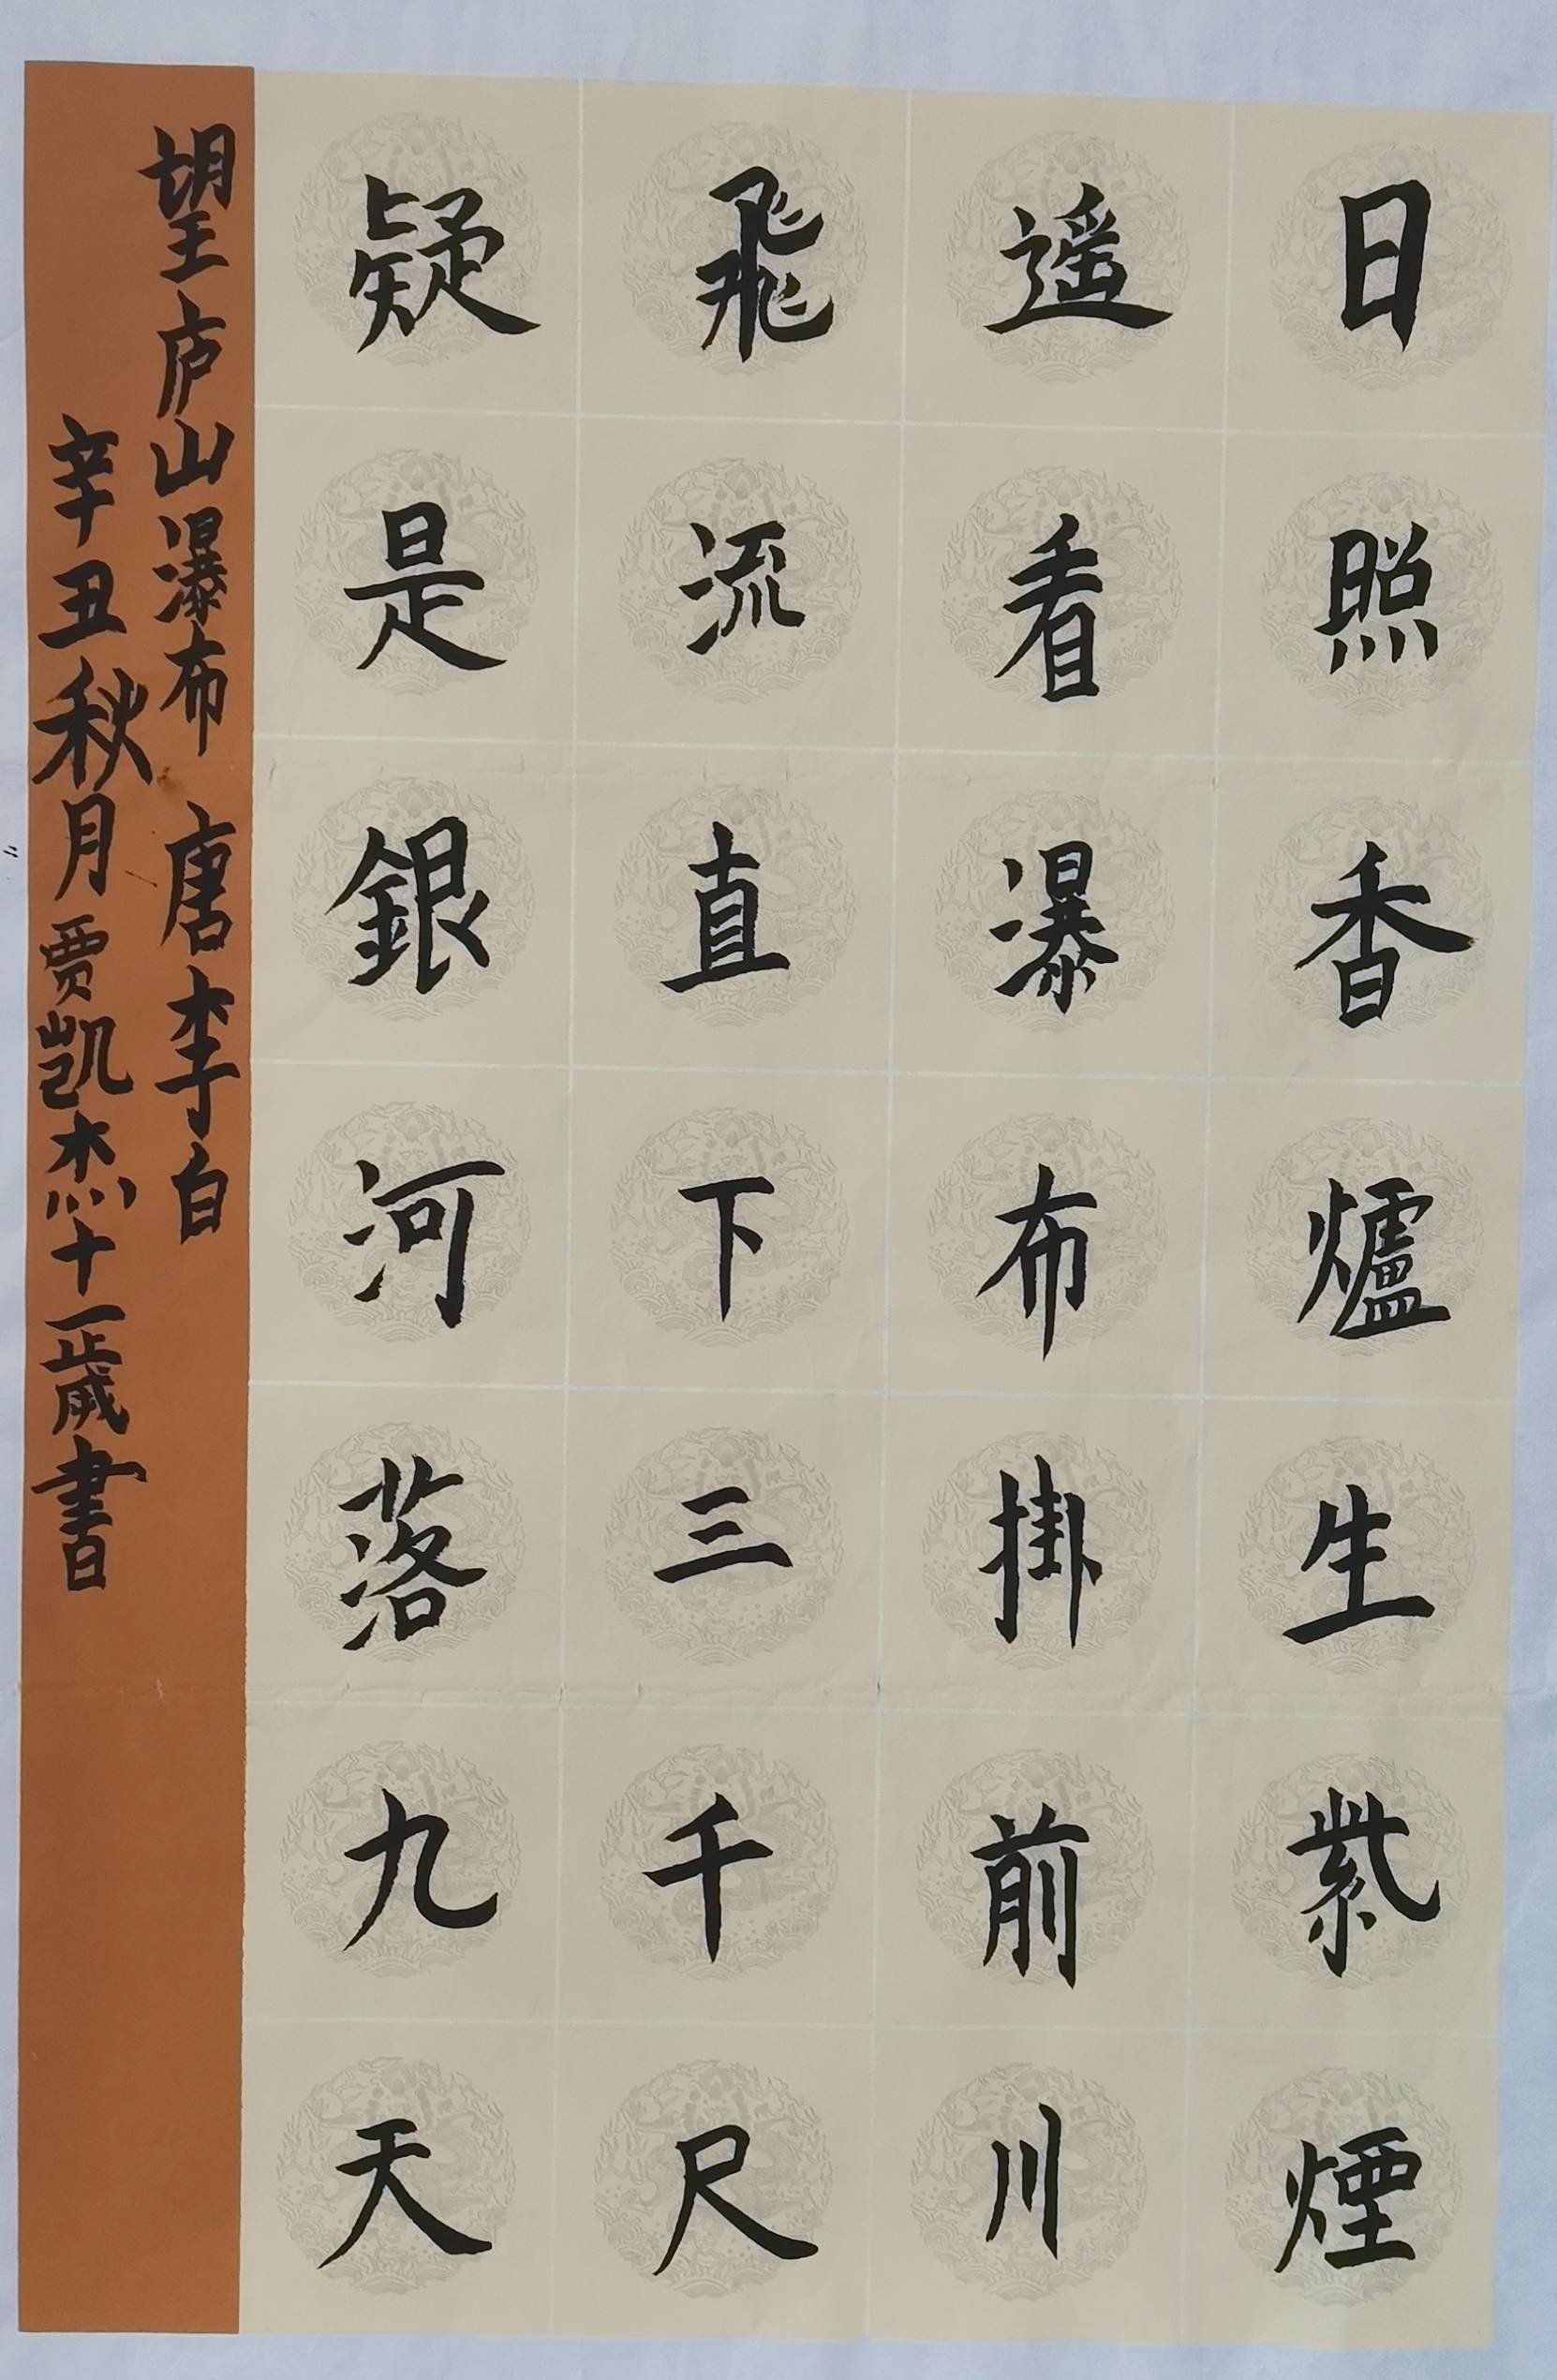 日照香爐生紫煙
遥看瀑布掛前川
飛流直下三千尺
疑是銀河落九天
望庐山瀑布 唐李白
辛丑秋月贾凯杰十一歲書